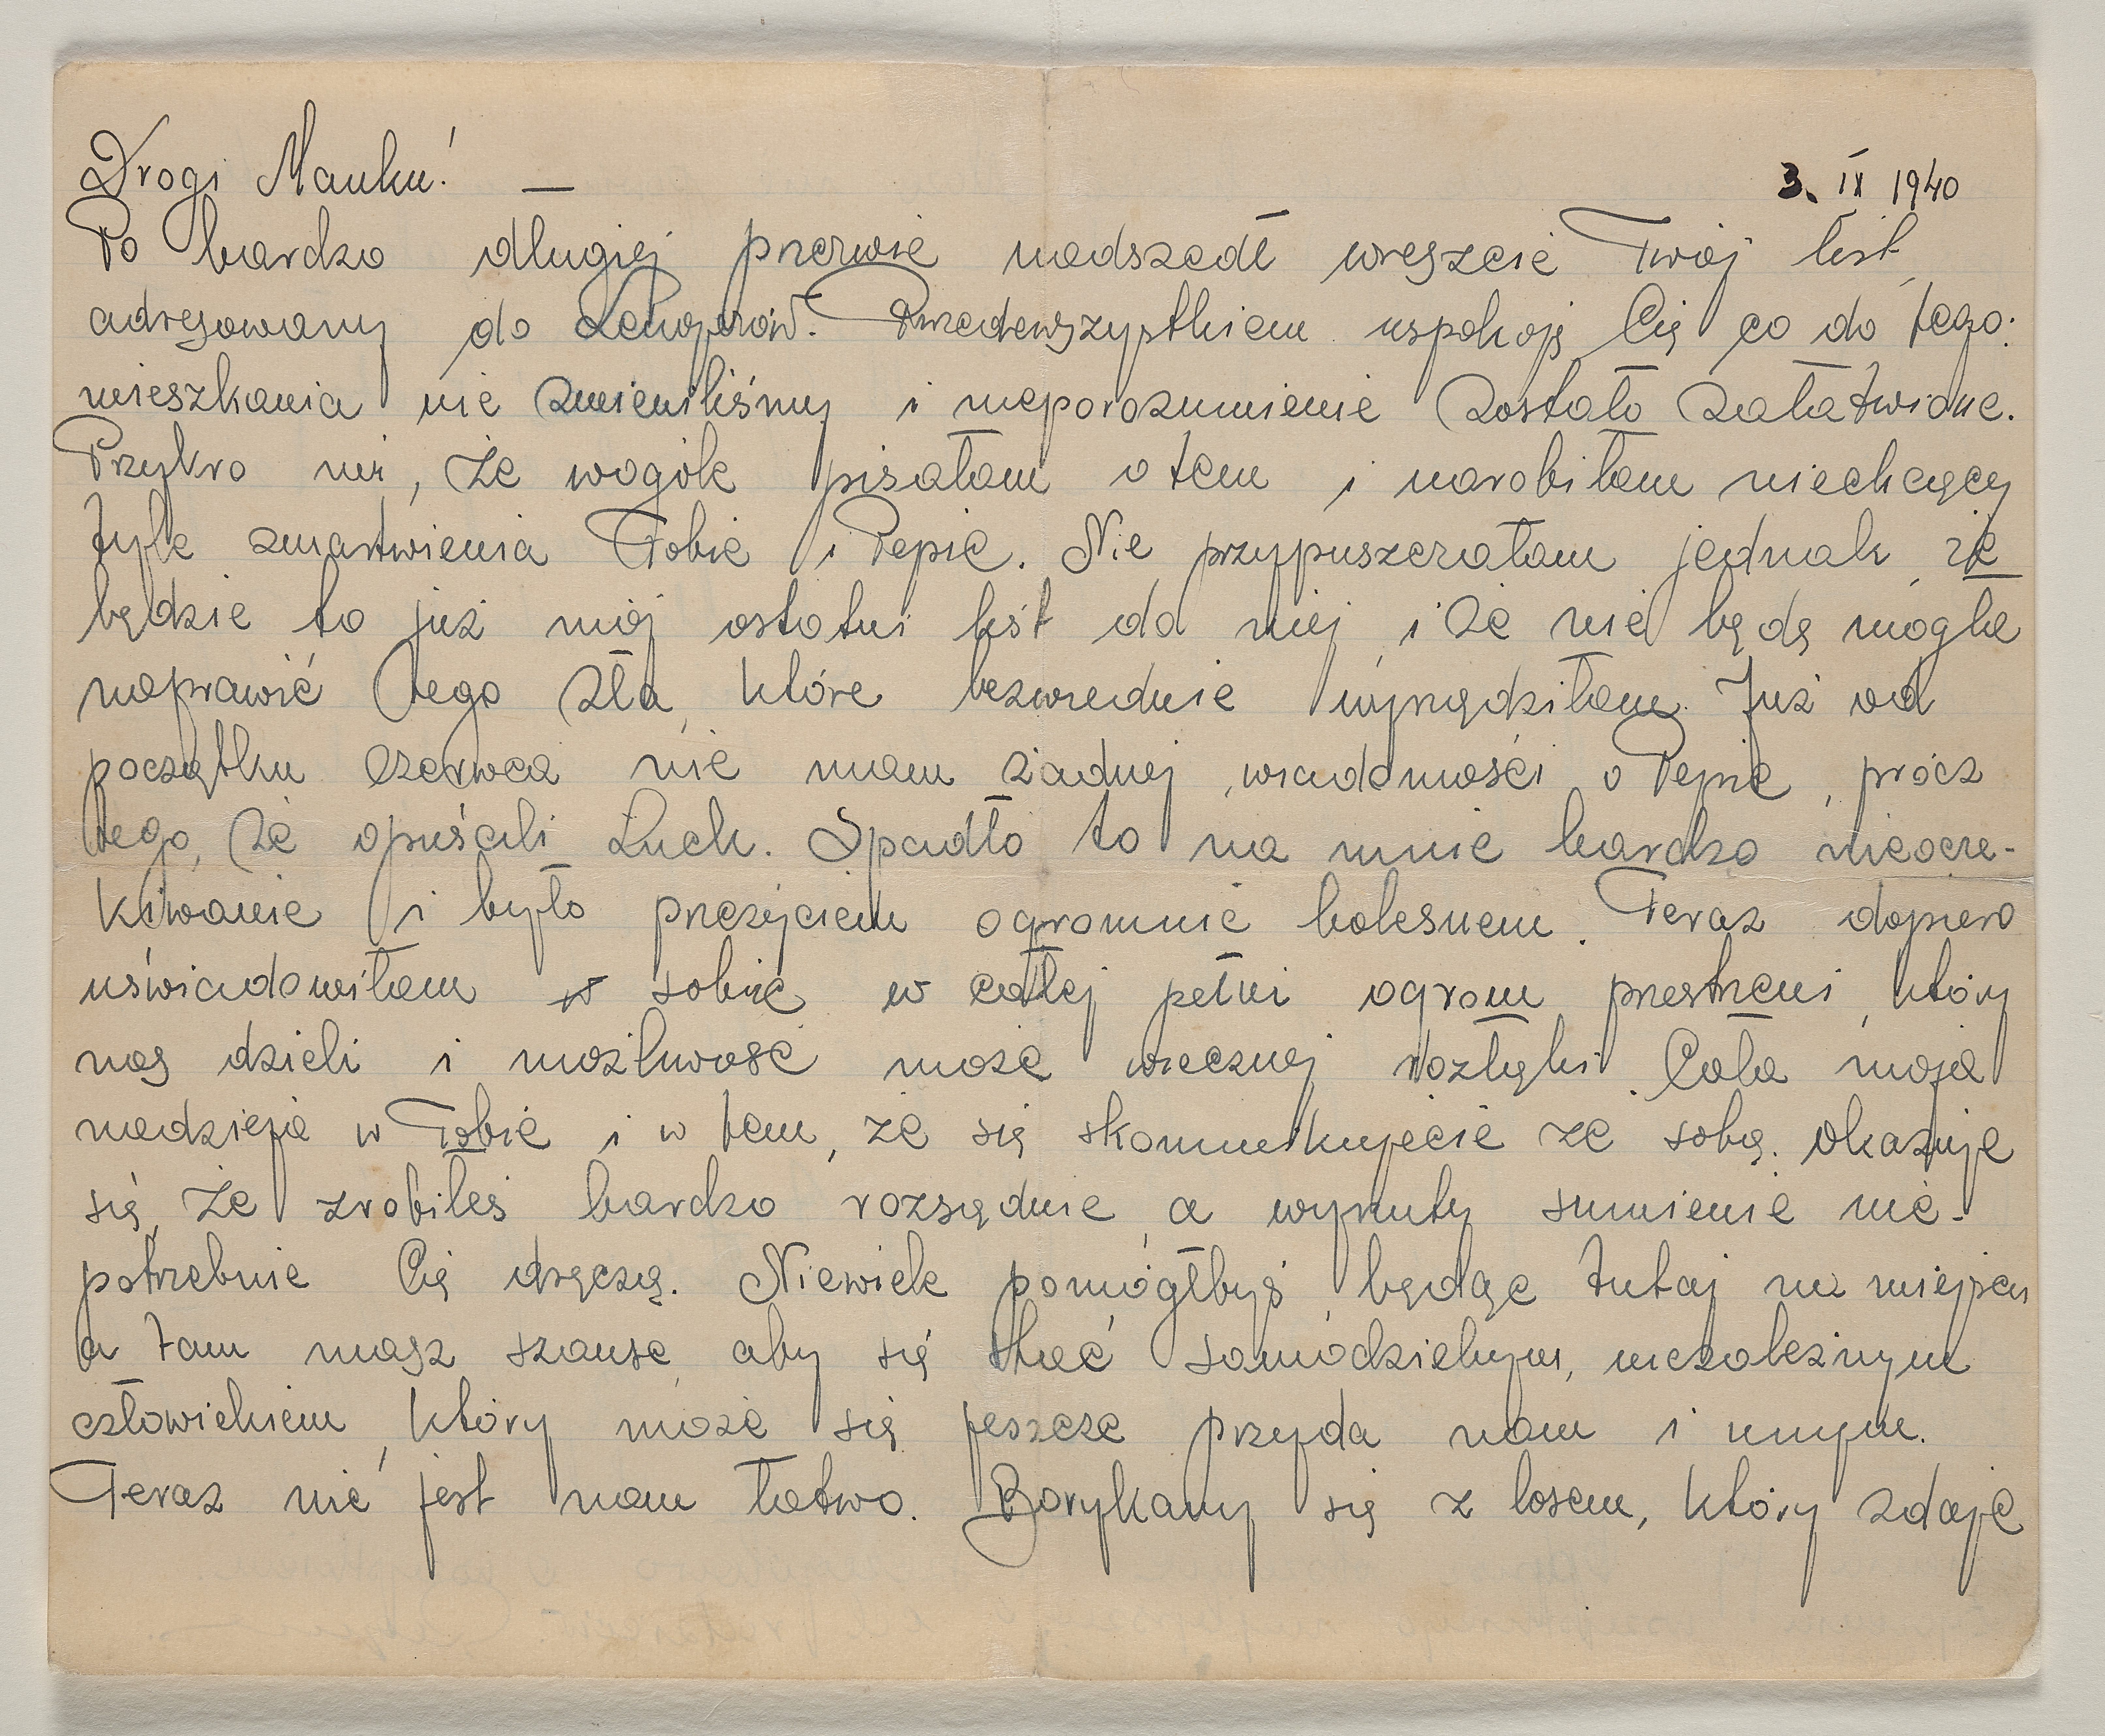 Drogi Manku! —
3. IX 1940
Po bardzo długiej przerwie nadszedł wreszcie Twój list,
adresowany do Lengerów. Przedewszystkiem uspokoję Cię co do tego:
mieszkania nie zmieniliśmy i nieporozumienie zostało załatwione.
Przykro mi, że wogóle pisałam o tem i narobiłam niechcący
tyle zmartwienia Tobie i Pepie. Nie przypuszczałam jednak, że
będzie to już mój ostatni list do niej i że nie będę mogła
naprawić tego zła, które bezwiednie wyrządziłam. Już od
początku czerwca nie mam żadnej wiadomości o Pepie, prócz
tego, że opuścili Łuck. Spadło to na mnie bardzo nieocze-
kiwanie i było przeżyciem ogromnie bolesnem. Teraz dopiero
uświadomiłam sobie w całej pełni ogrom przestrzeni, który
nas dzieli i możliwość może wiecznej rozłąki. Cała moja
nadzieja w Tobie i w tem, że się skomunikujecie ze sobą. Okazuje
się, że zrobiłeś bardzo rozsądnie, a wyrzuty sumienie nie-
potrzebnie Cię dręczą. Niewiele pomógłbyś, będąc tutaj na miejscu
a tam masz szansę, aby się stać samodzielnym, niezależnym
człowiekiem, który może się jeszcze przyda nam i innym.
Teraz nie jest nam łatwo. Borykamy się z losem, który zdaje